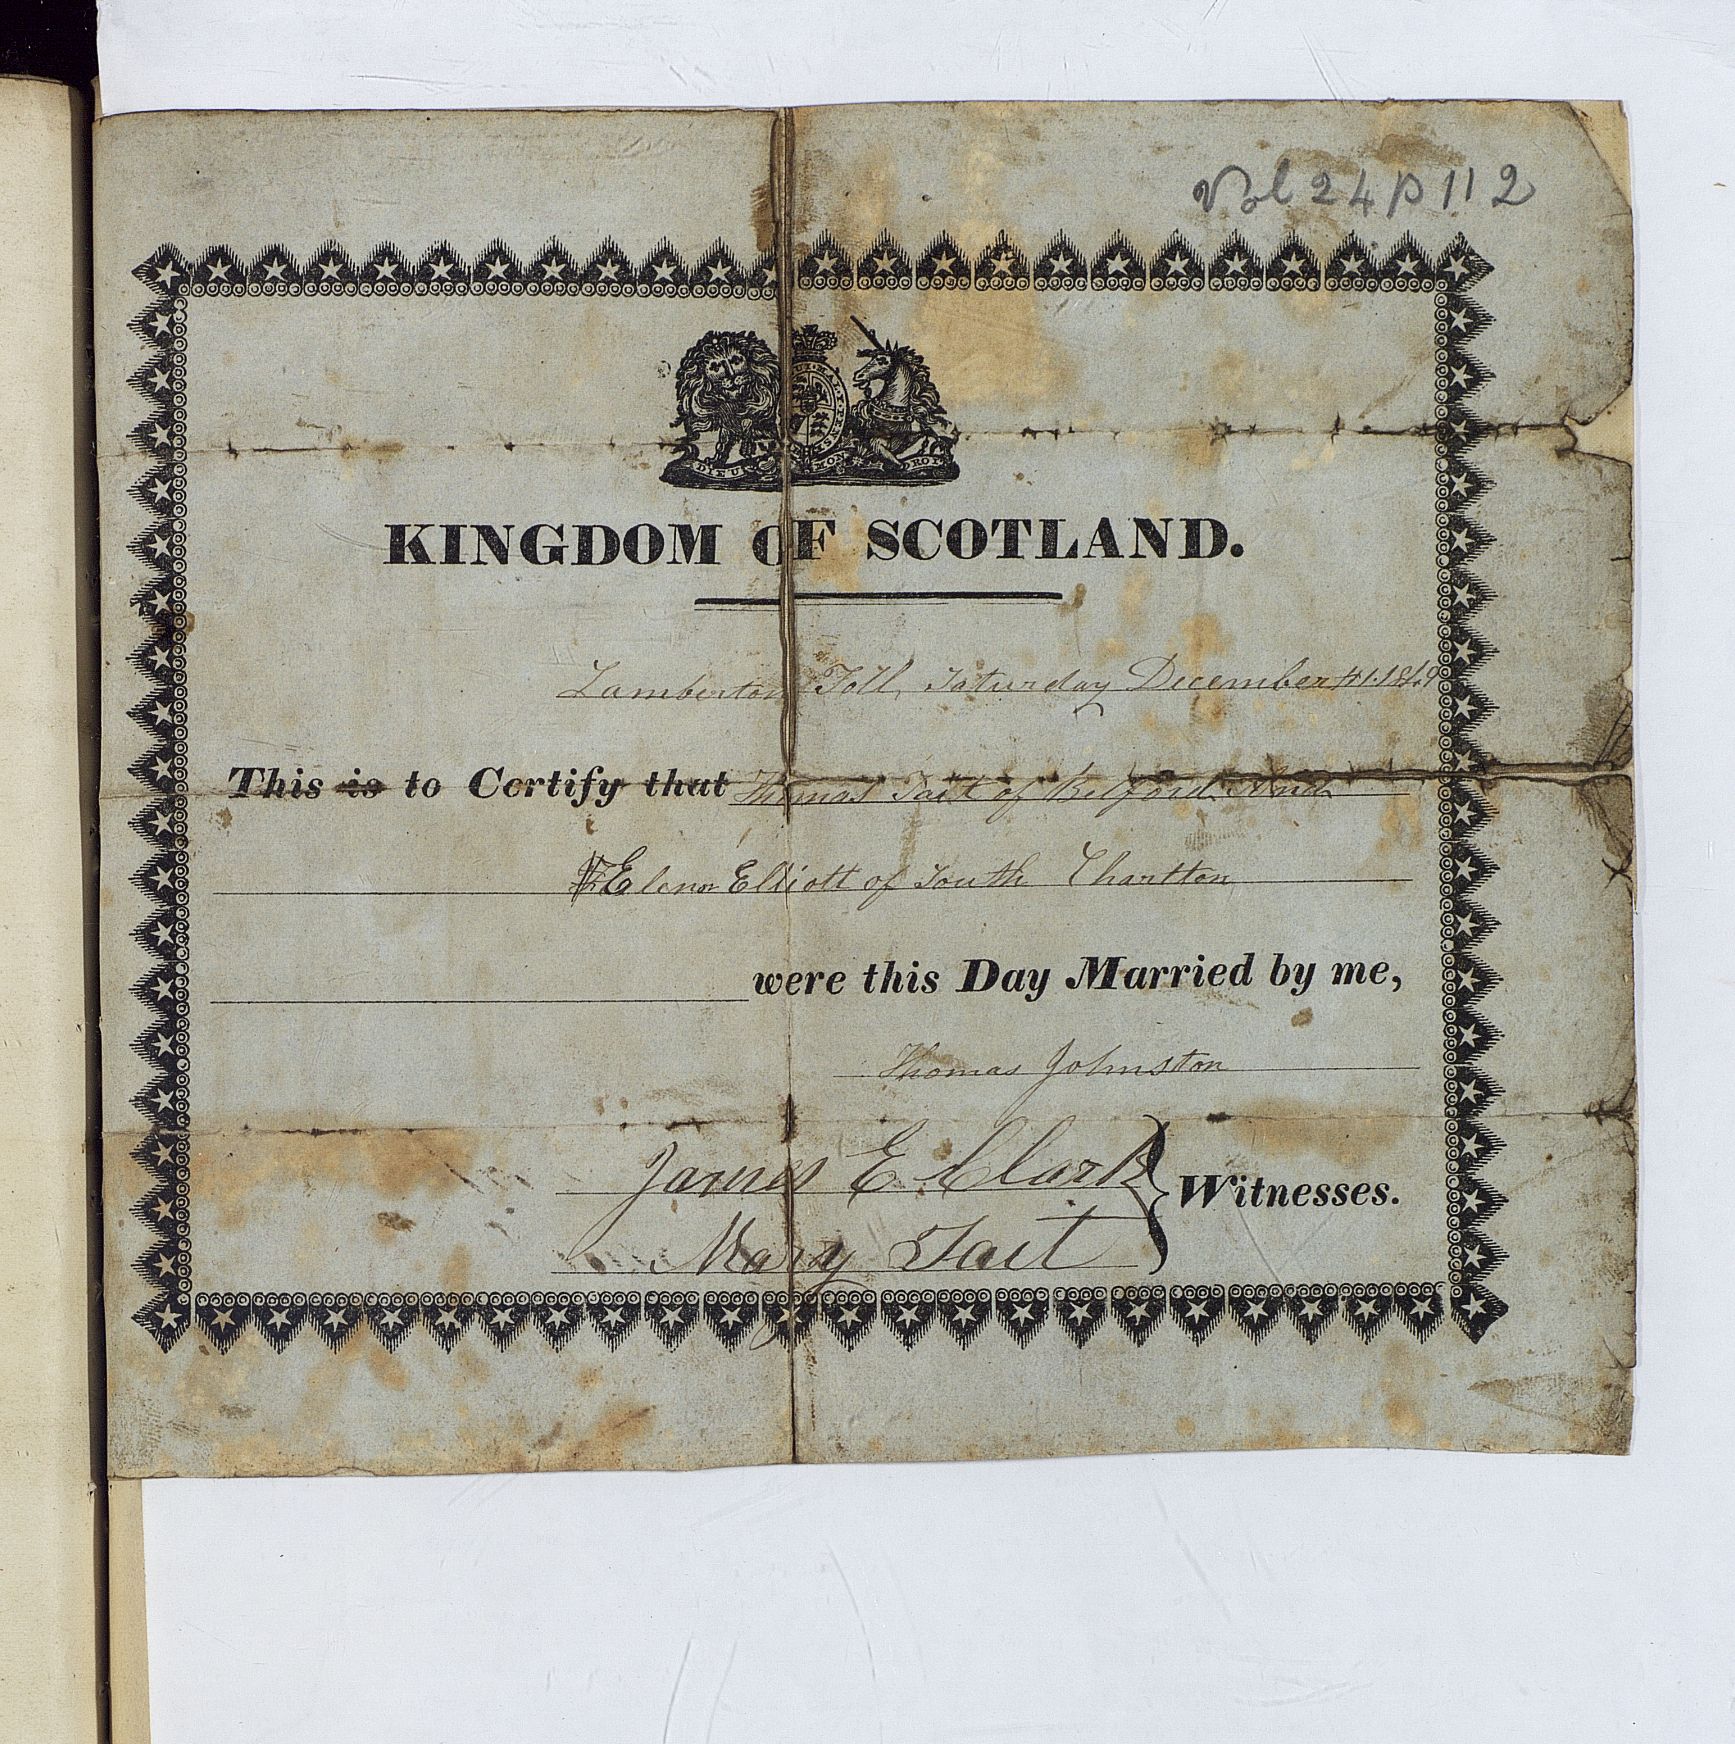 Vol 24 p 112
HONI SOIT QUI MAL Y PENSE
DIEU ET MON DROIT
KINGDOM OF SCOTLAND.
Lamberton Toll, Saturday December 1. 1849
This is to Certify that Thomas Tait of Belford And
Elenor Elliott of South Charlton
were this Day Married by me,
Thomas Johnston
James E Clark
Witnesses.
Mary Tait